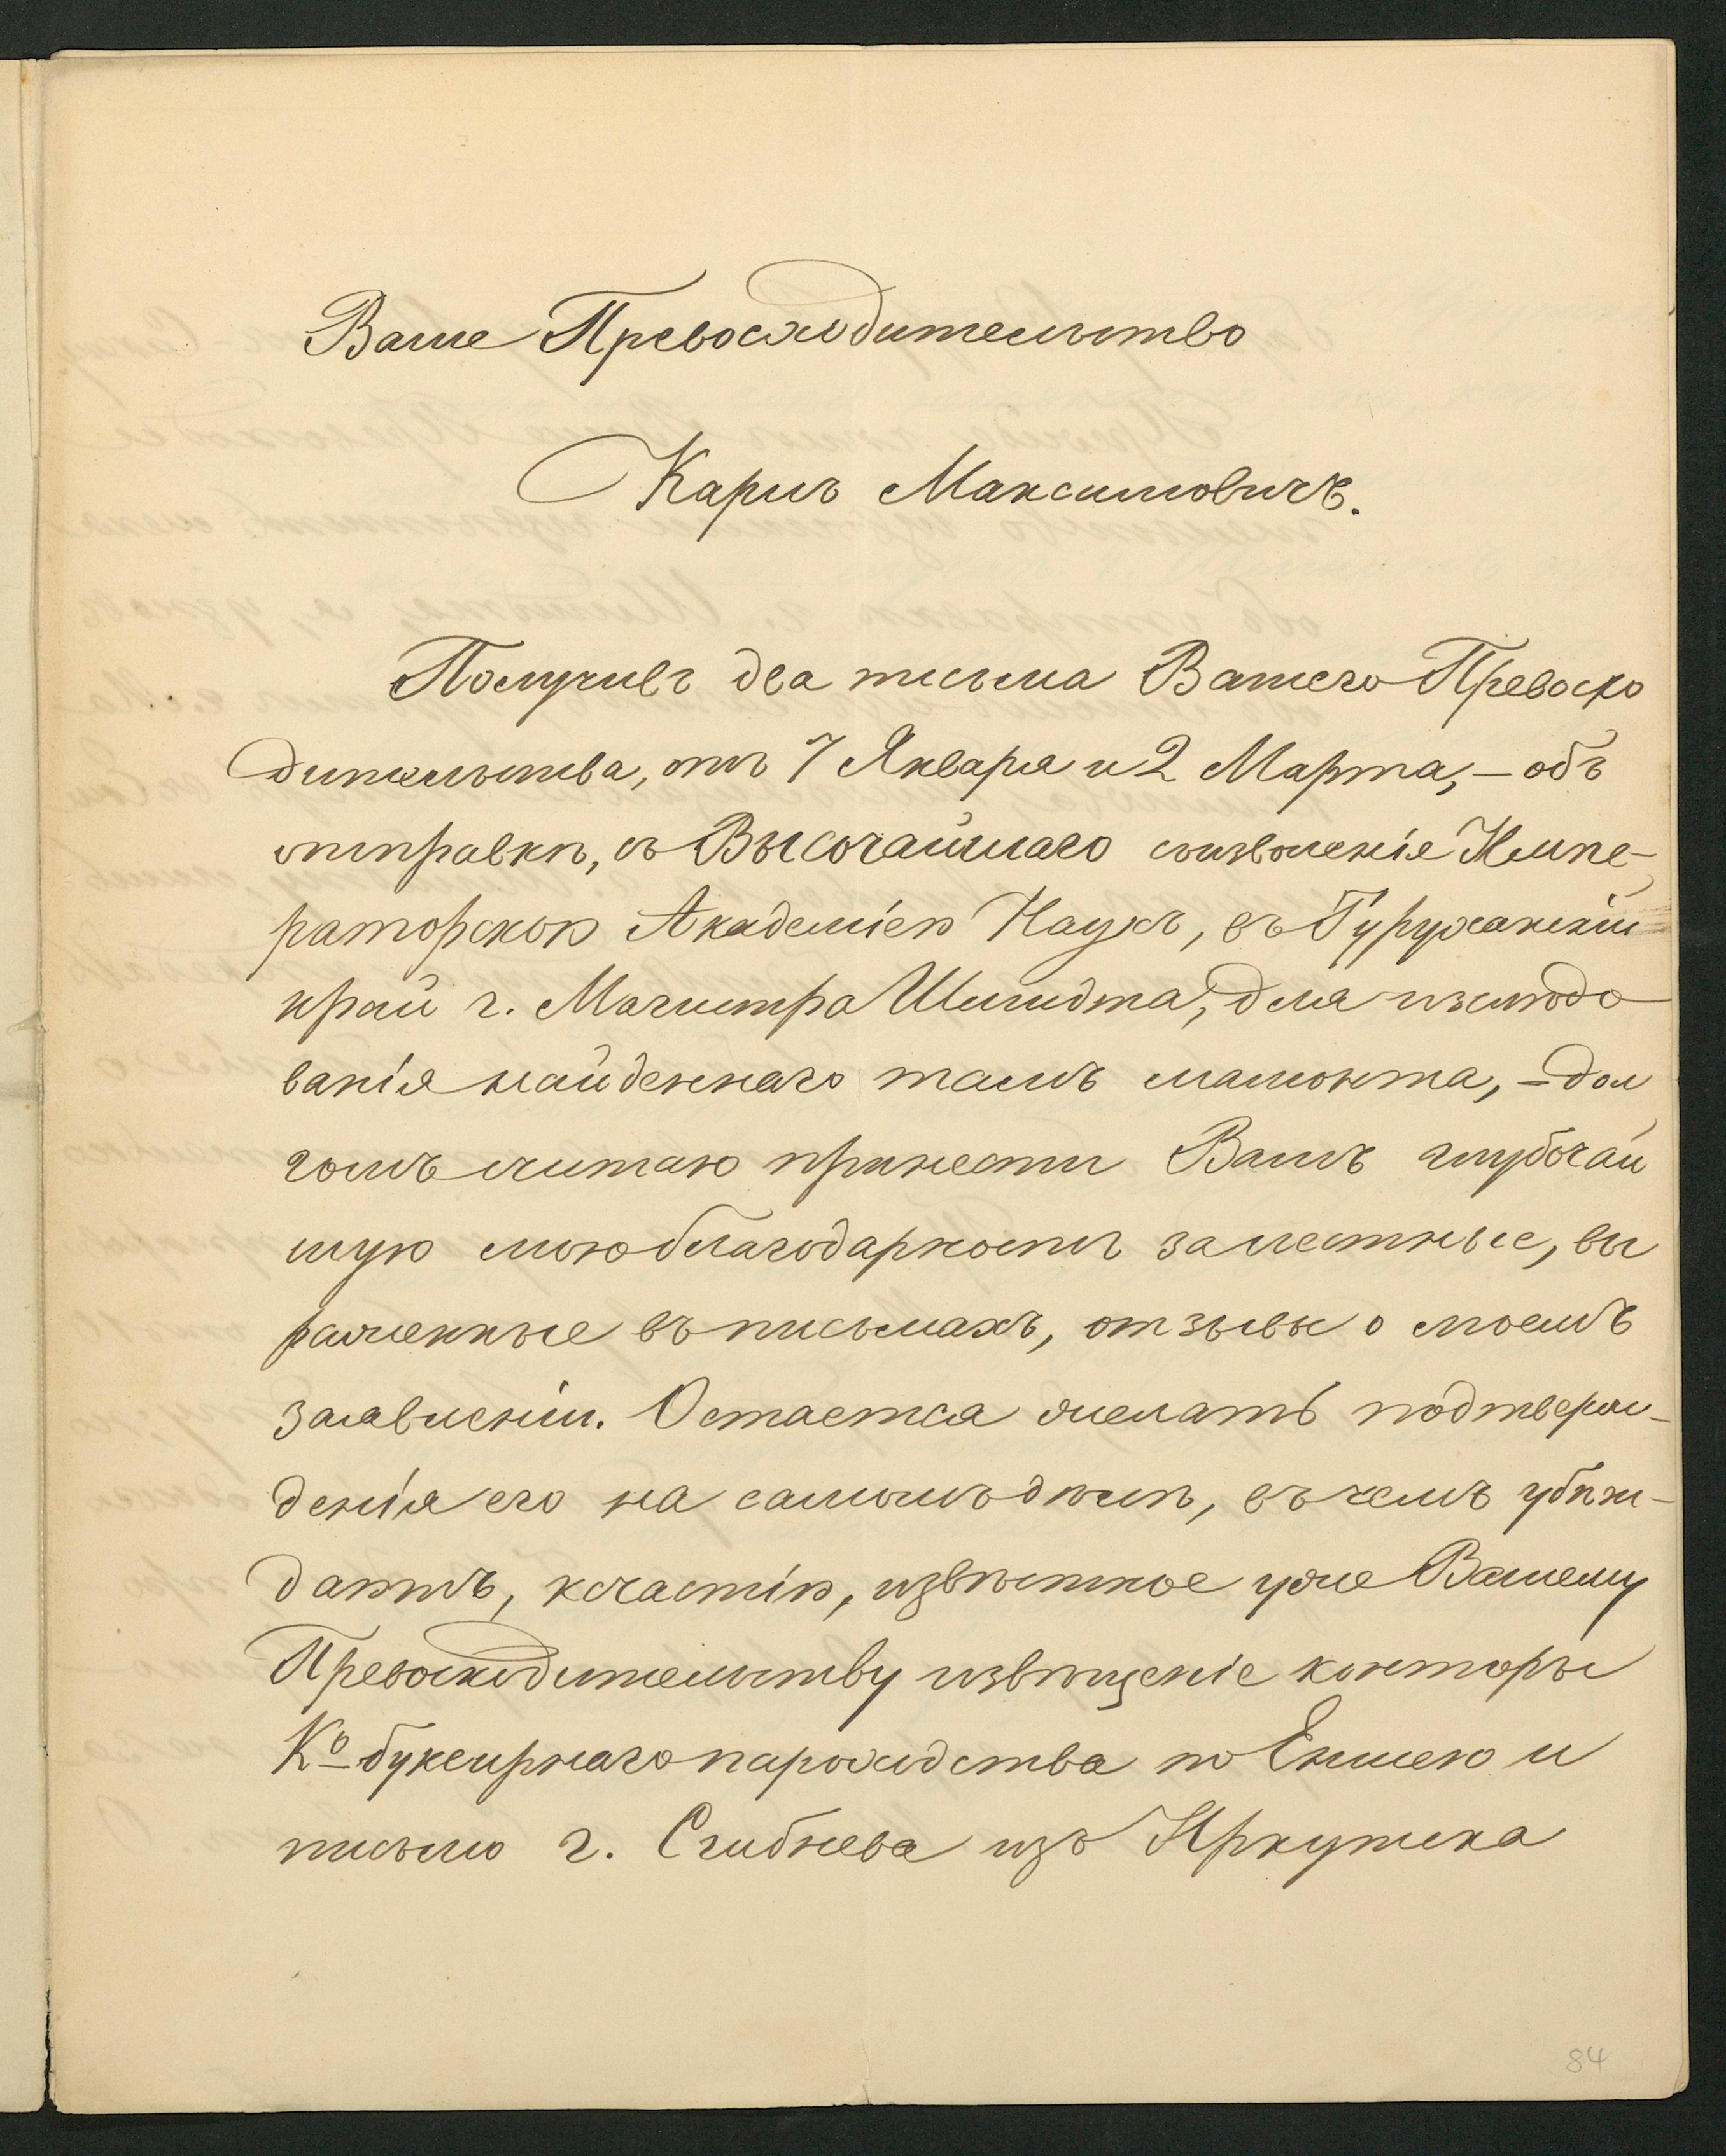 Ваше Превосходительство
Карлъ Максимовичъ.
Получивъ два письма Вашего Превосхо
дительства, отъ 7 Января и 2 Марта, – объ
отправкѣ, съ Высочайшаго соизволенія Импе-
раторскою Академіею Наукъ, въ Туруханскій
край г. Магистра Шмидта, для изслѣдо
ванія найденнаго тамъ мамонта, – дол
гомъ считаю принести Вамъ глубочай
шую мою благодарность за лестные, вы
раженные въ письмахъ, отзывы о моемъ
заявленіи. Остается желать подтверж-
денія его на самомъ дѣлѣ, въ чемъ убѣж-
даютъ, к счастію, извѣстное уже Вашему
Превосходительству извѣщеніе конторы
Ко буксирнаго пароходства по Енисею и
письмо г. Сгибнева изъ Иркутска
84